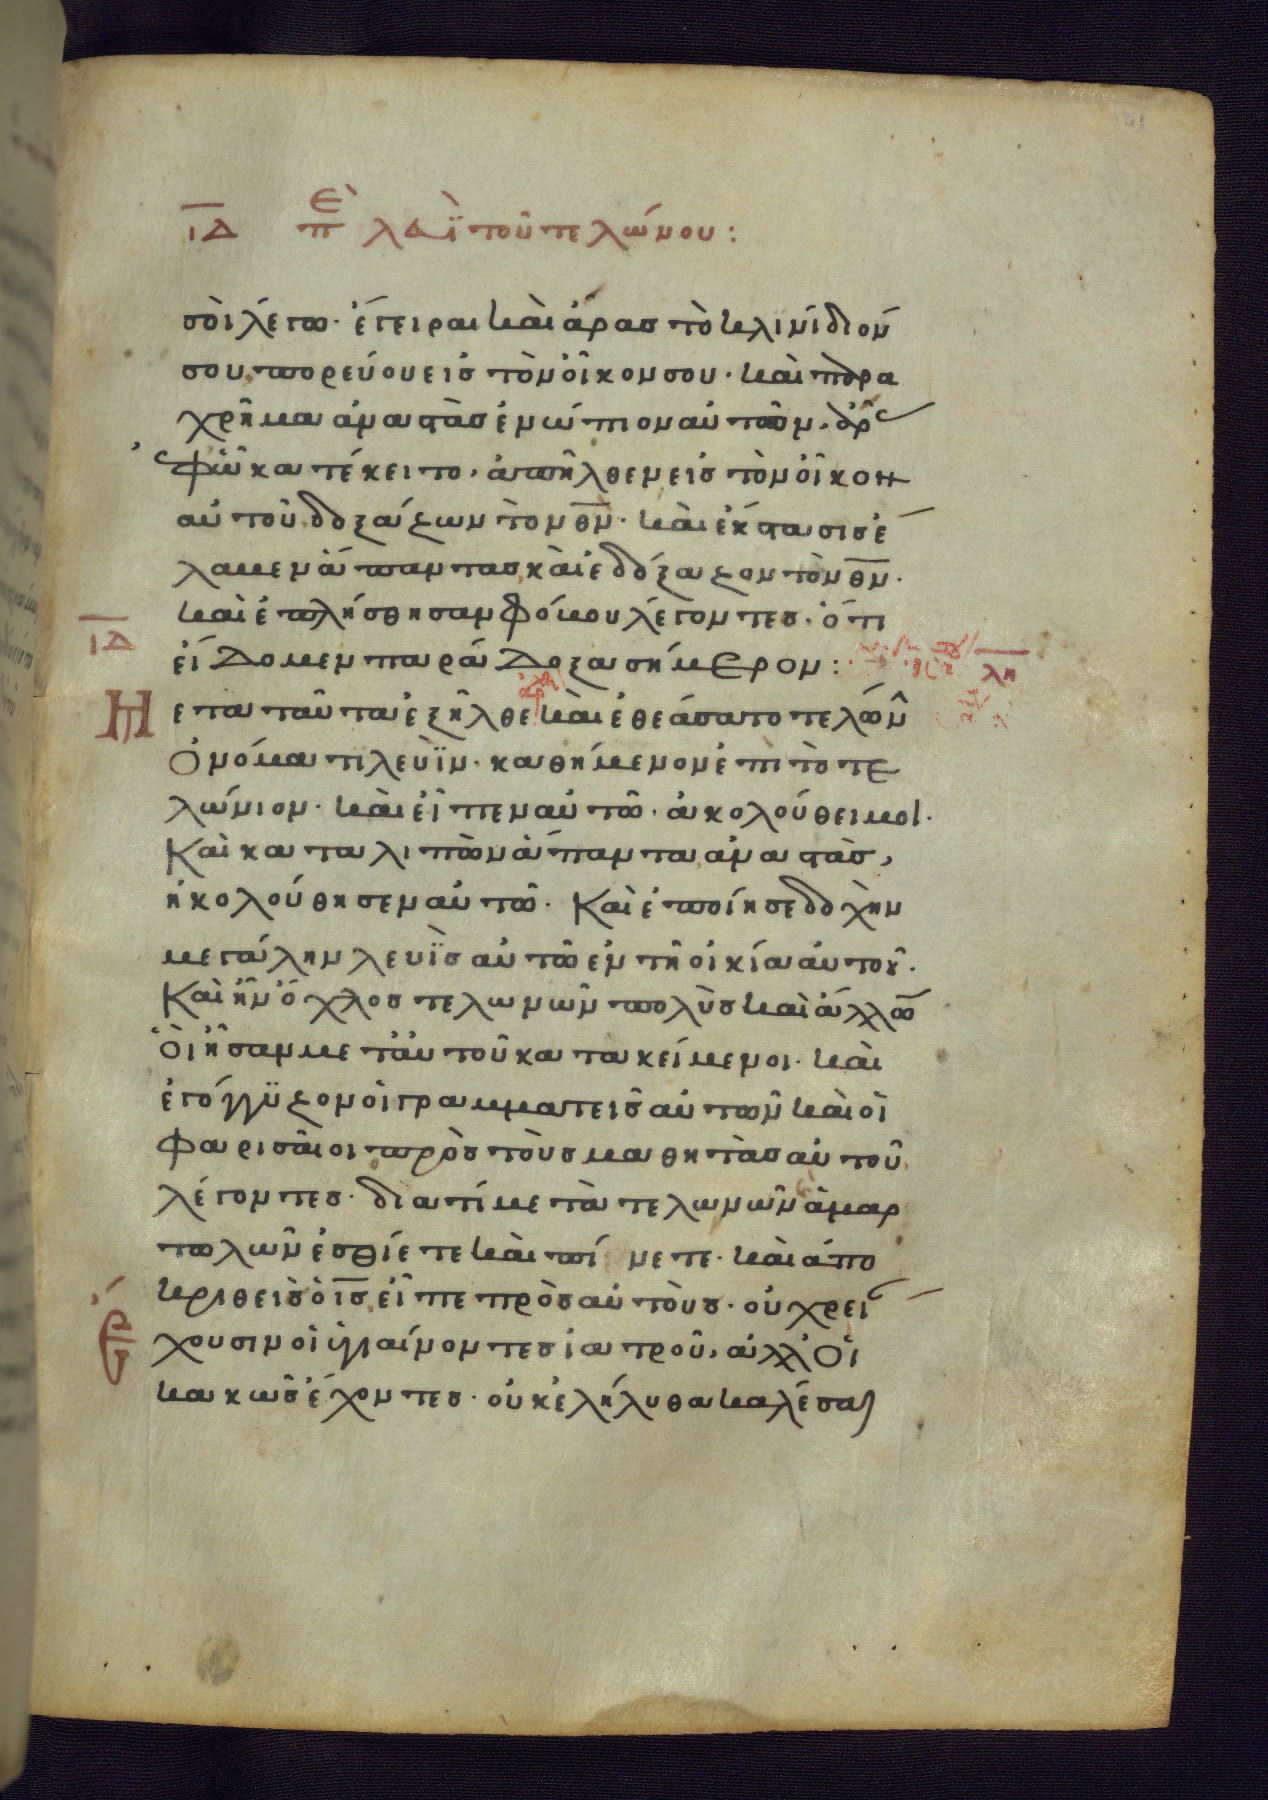 ΙΔ Πε λευὶ τοῦ τελώνου :
σοὶ λέγω· ἔγειραι καὶ ἄρας τὸ κλινίδιόν
σου πορεύου εἰς τὸν οἶκον σου· καὶ παρα
χρῆμα ἀναστὰς ἐνώπιον αὐτῶν, ἄρ
ἐφ ᾧ κατέκειτο, ἀπῆλθεν εἰς τὸν οἶκον
αὐτοῦ δοξάζων τὸν θν· καὶ ἔκστασις ἔ
λαβεν ἅπαντας καὶ ἐδόξαζον τὸν θν·
καὶ ἐπλήσθησαν φόβου λέγοντες· ὅτι
ΙΔ
εἴδομεν παράδοξα σήμερον :
λη
Με τα ταῦτα ἐξῆλθε καὶ ἐθεάσατο τελώνην
Ὀνόματι λευὶν· καθήμενον ἐπὶ τὸ τε
λώνιον· καὶ εἶπεν αὐτῶ· ἀκολούθει μοι·
Καὶ καταλιπὼν ἅπαντα ἀναστὰς,
ἠκολούθησεν αὐτῶ· Καὶ ἐποίησε δοχὴν
μεγάλην λευὶς αὐτῶ ἐν τῆ οἰκία αὐτοῦ·
Καὶ ἦν ὄχλος τελωνῶν πολὺς καὶ ἄλλων
Οἳ ἦσαν μετ' αὐτοῦ κατακείμενοι· καὶ
ἐγόγγυζον οἱ γραμματεῖς αὐτῶν καὶ οἱ
Φαρισαῖοι πρὸς τοὺς μαθητὰς αὐτοῦ
λέγοντες· διατί μετὰ τελωνῶν ἁμαρ
τωλῶν ἐσθίετε καὶ πίνετε· καὶ ἀπο
κριθεὶς ὁ ις εἶπε πρὸς αὐτοὺς· οὐ χρεί
χουσιν οἱ ὑγιαίνοντες ἰατροῦ, ἀλλ' Οἱ
κακῶς ἔχοντες· οὐκ ἐλήλυθα καλέσαι